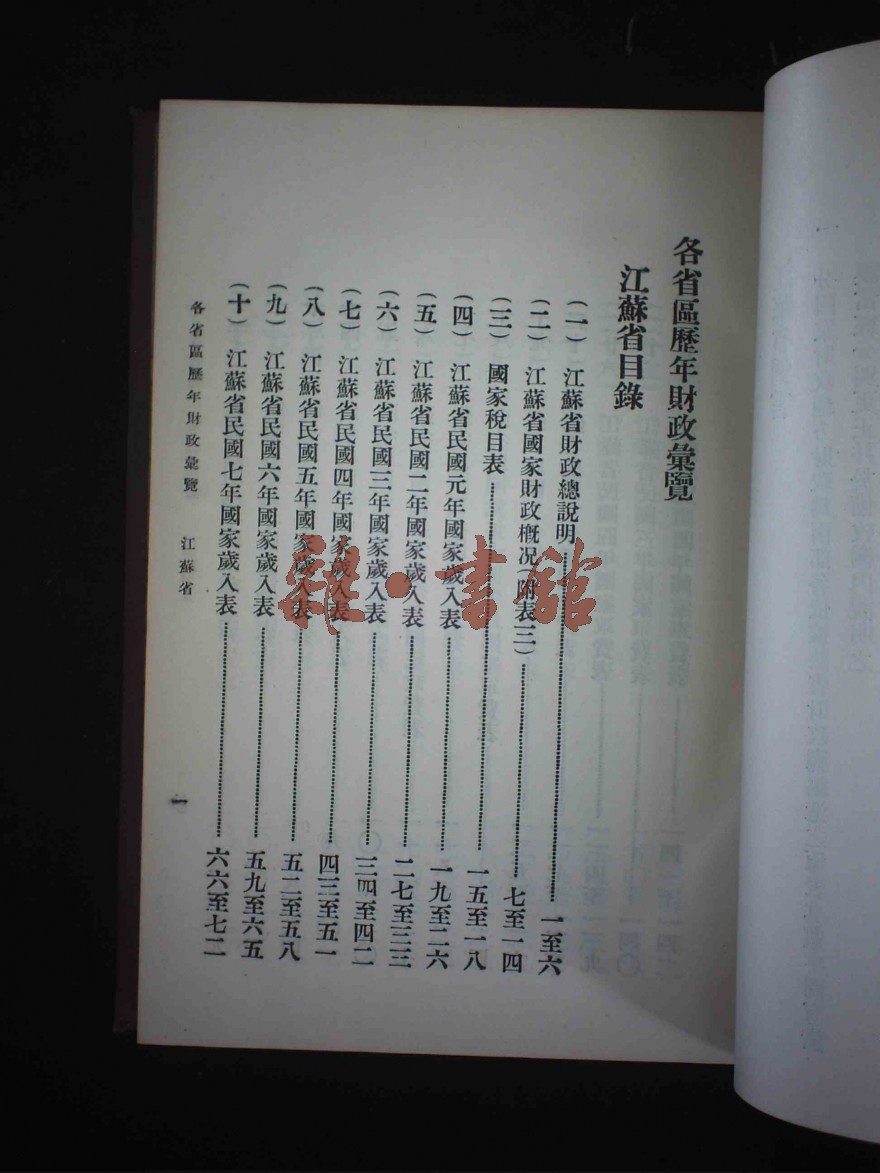 各省區歷年財政彙覽
江蘇省目錄
(一) 江蘇省財政總說明 一至六
(二) 江蘇省國家財政概況(附表三) 七至一四
(三) 國家稅目表 一五至一八
(四) 江蘇省民國元年國家歲入表 一九至二六
(五) 江蘇省民國二年國家歲入表 二七至三三
(六) 江蘇省民國三年國家歲入表 三四至四二
(七) 江蘇省民國四年國家歲入表 四三至五一
(八) 江蘇省民國五年國家歲入表 五二至五八
(九) 江蘇省民國六年國家歲入表 五九至六五
(十) 江蘇省民國七年國家歲入表 六六至七二
各省區歷年財政彙覽 江蘇省 一
雜·書館